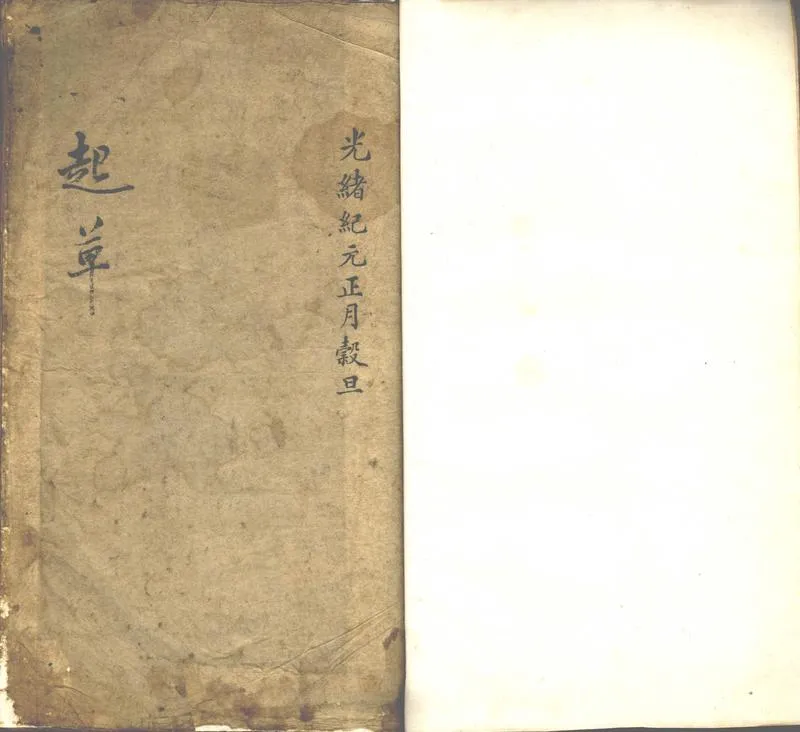 光緒紀元正月穀旦
起草